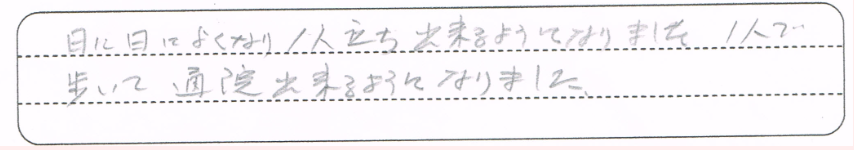 日に日によくなり1人立ち出来るようになりました 1人で
歩いて 通院出来るようになりました。